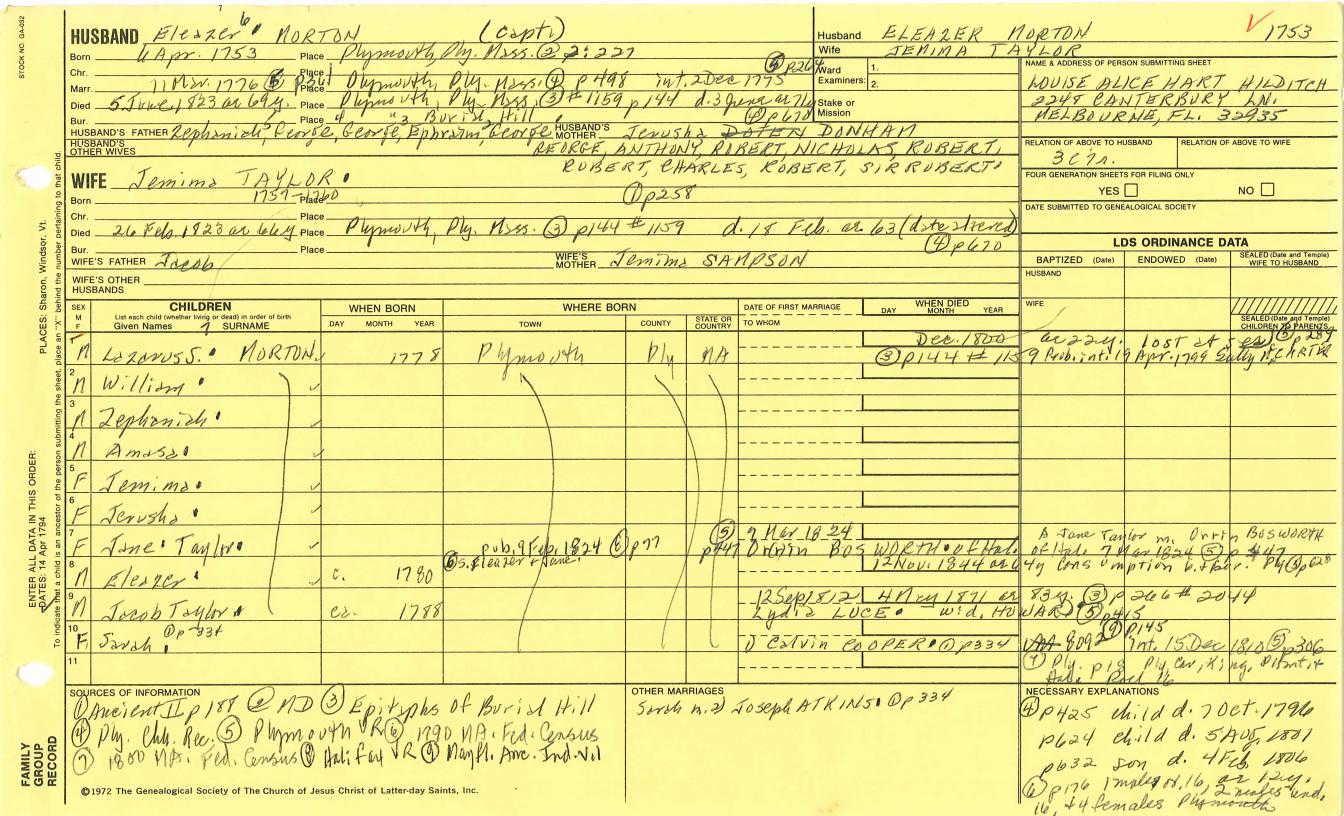 STOCK NO. GA-092
HUSBAND Eleazer 6 MORTON (Capt.)
Born 6 Apr. 1753 Place Plymouth Ply. Mass. ② 2:227
Chr. Place ⑤ p264
Marr. 11 Mar. 1776 Place Plymouth, Ply. Mass. ④ p498 int. 2 Dec 1775
Died 5 June, 1823 ae 69y. Place Plymouth, Ply. Mass. ③ #1159 p144 d. 3 June ae 71y
Bur. Place Burial Hill ④ p670
HUSBAND'S FATHER Zephaniah, George, George, Ephraim, George HUSBAND'S MOTHER Jerusha DOTEN DONHAM
HUSBAND'S OTHER WIVES GEORGE, ANTHONY, ROBERT, NICHOLAS, ROBERT,
ROBERT, CHARLES, ROBERT, SIR ROBERT
WIFE Jemima TAYLOR
Born 1757-1760 Place ① p258
Chr. Place
Died 26 Feb. 1823 ae 66y Place Plymouth, Ply. Mass. ③ p144 #1159 d. 18 Feb. ae 63 (date altered)
Bur. Place ④ p670
WIFE'S FATHER Jacob WIFE'S MOTHER Jemima SAMPSON
WIFE'S OTHER HUSBANDS
Husband ELEAZER MORTON 1753
Wife JEMIMA TAYLOR
Ward Examiners: 1. 2.
Stake or Mission
NAME & ADDRESS OF PERSON SUBMITTING SHEET
LOUISE ALICE HART HILDITCH
2248 CANTERBURY LN.
MELBOURNE, FL. 32935
RELATION OF ABOVE TO HUSBAND RELATION OF ABOVE TO WIFE
3C7r.
FOUR GENERATION SHEETS FOR FILING ONLY
YES NO
DATE SUBMITTED TO GENEALOGICAL SOCIETY
LDS ORDINANCE DATA
BAPTIZED (Date) ENDOWED (Date) SEALED (Date and Temple) WIFE TO HUSBAND
HUSBAND
WIFE
SEALED (Date and Temple) CHILDREN TO PARENTS
SEX M F CHILDREN WHEN BORN WHERE BORN DATE OF FIRST MARRIAGE WHEN DIED
List each child (whether living or dead) in order of birth
Given Names 7 SURNAME DAY MONTH YEAR TOWN COUNTY STATE OR COUNTRY TO WHOM DAY MONTH YEAR
1 M Lazarus S. MORTON 1778 Plymouth Ply MA Dec. 1800 ae 22y. lost at sea ⑤ p289
③ p144 #1159 Pub. int. 19 Apr. 1799 Sally M. CARTER
2 M William
3 M Zephaniah
4 M Amasa
5 F Jemima
6 F Jerusha
7 F Jane Taylor pub. 9 Feb. 1824 ⑧ p77 ⑤ p447 7 Mar 1824 Orrin BOSWORTH of Hal.
A Jane Taylor m. Orrin BOSWORTH
of Halifax 7 Mar 1824 ⑤ p 447
8 M Eleazer c. 1780 ⑥ s. Eleazer & Jane 12 Nov. 1844 ae 64y Consumption
9 M Jacob Taylor ca. 1788 12 Sep 1812 4 May 1871 ae 83y. ③ p266 #2044
Lydia LUCE wid. HOWARD ⑤ p415
10 F Sarah ① p334 1) Calvin COOPER ① p334 int. 15 Dec 1810 ⑤ p306
⑨ p145
11
SOURCES OF INFORMATION
① Ancient II p188 ② MD ③ Epitaphs of Burial Hill
④ Ply. Chh. Rec. ⑤ Plymouth VR ⑥ 1790 MA. Fed. Census
⑦ 1800 MA. Fed. Census ⑧ Halifax VR ⑨ Mayfl. Anc. Ind. Vil
OTHER MARRIAGES
Sarah m. 2) Joseph ATKINS ① p334
NECESSARY EXPLANATIONS
④ p425 child d. 7 Oct. 1796
p624 child d. 5 Aug. 1801
p632 son d. 4 Feb. 1806
⑥ p176 1 males of 16, 2 males und.
16, & 4 females Plymouth
©1972 The Genealogical Society of The Church of Jesus Christ of Latter-day Saints, Inc.
FAMILY GROUP RECORD
ENTER ALL DATA IN THIS ORDER:
DATES: 14 Apr 1794 PLACES: Sharon, Windsor, Vt.
To indicate that a child is an ancestor of the person submitting the sheet, place an "X" behind the number pertaining to that child